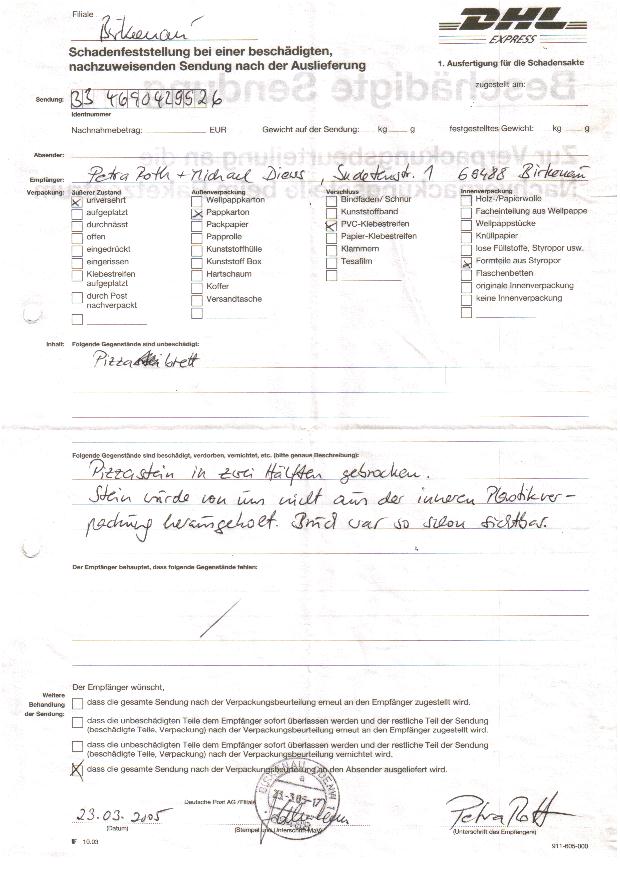 Filiale
Birkenau
DHL
EXPRESS
Schadenfeststellung bei einer beschädigten,
nachzuweisenden Sendung nach der Auslieferung
1. Ausfertigung für die Schadensakte
zugestellt am:
Sendung: 33 4690429526
Identnummer
Nachnahmebetrag: EUR Gewicht auf der Sendung: kg g festgestelltes Gewicht: kg g
Absender:
Empfänger: Petra Roth + Michael Diess, Sudetenstr. 1 69488 Birkenau
Verpackung: äußerer Zustand Außenverpackung Verschluss Innenverpackung
unversehrt Wellpappkarton Bindfaden/ Schnur Holz-/Papierwolle
aufgeplatzt Pappkarton Kunststoffband Facheinteilung aus Wellpappe
durchnässt Packpapier PVC-Klebestreifen Wellpappstücke
offen Papprolle Papier-Klebestreifen Knüllpapier
eingedrückt Kunststoffhülle Klammern lose Füllstoffe, Styropor usw.
eingerissen Kunststoff Box Tesafilm Formteile aus Styropor
Klebestreifen Hartschaum Flaschenbetten
aufgeplatzt Koffer originale Innenverpackung
durch Post Versandtasche keine Innenverpackung
nachverpackt
Inhalt: Folgende Gegenstände sind unbeschädigt:
Pizza brett
Folgende Gegenstände sind beschädigt, verdorben, vernichtet, etc. (bitte genaue Beschreibung):
Pizzastein in zwei Hälften gebrochen.
Stein würde von uns nicht aus der inneren Plastikver-
packung herausgeholt. Bruch war so schon sichtbar.
Der Empfänger behauptet, dass folgende Gegenstände fehlen:
Der Empfänger wünscht,
Weitere
Behandlung
der Sendung:
dass die gesamte Sendung nach der Verpackungsbeurteilung erneut an den Empfänger zugestellt wird.
dass die unbeschädigten Teile dem Empfänger sofort überlassen werden und der restliche Teil der Sendung
(beschädigte Teile, Verpackung) nach der Verpackungsbeurteilung erneut an den Empfänger zugestellt wird.
dass die unbeschädigten Teile dem Empfänger sofort überlassen werden und der restliche Teil der Sendung
(beschädigte Teile, Verpackung) nach der Verpackungsbeurteilung vernichtet wird.
dass die gesamte Sendung nach der Verpackungsbeurteilung an den Absender ausgeliefert wird.
23.03.2005
(Datum)
Deutsche Post AG /Filiale
23.-3.05-17
(Stempel und Unterschrift MaV)
Petra Roth
(Unterschrift des Empfängers)
F 10.03
911-605-000